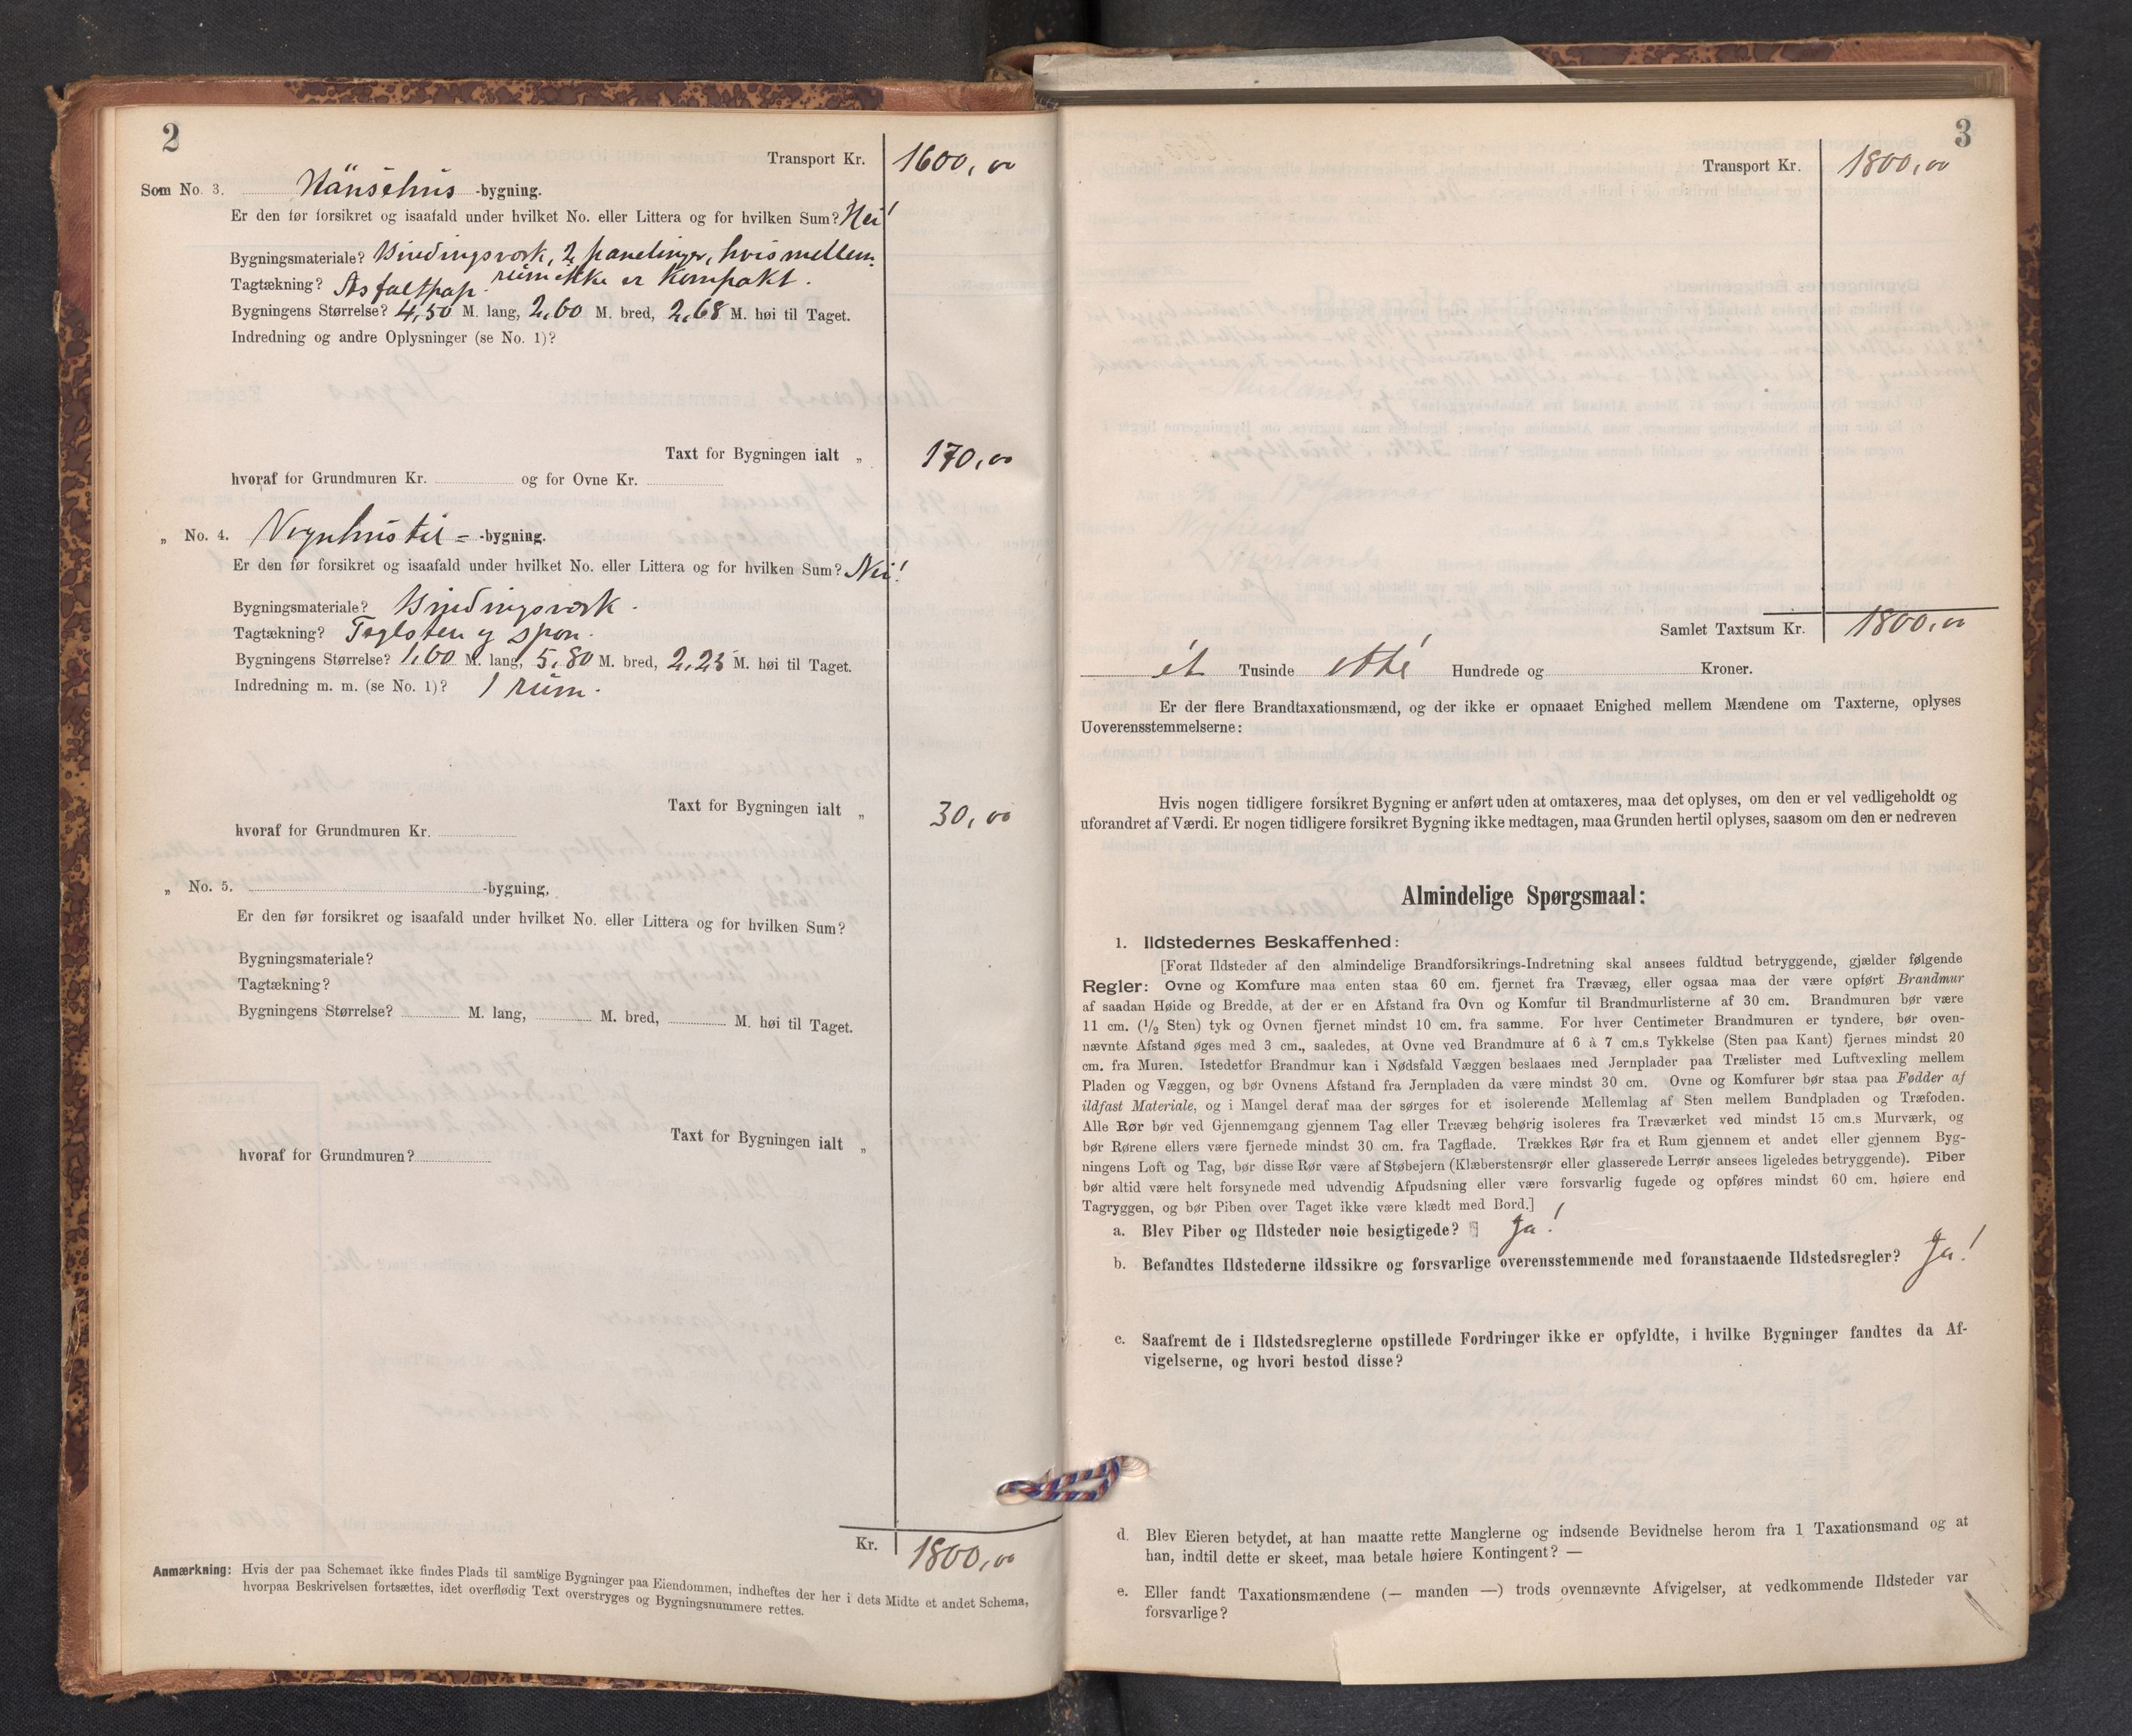 2
Transport Kr. 1600,00
Som No. 3. Hönsehus -bygning.
Er den før forsikret og isaafald under hvilket No. eller Littera og for hvilken Sum? Nei!
Bygningsmateriale? Bindingsverk, 2 panelinger, hvis mellem-
rum ikke er kompakt.
Tagtækning? Asfaltpap.
Bygningens Størrelse? 4,50 M. lang, 2,60 M. bred, 2,68 M. høi til Taget.
Indredning og andre Oplysninger (se No. 1)?
Taxt for Bygningen ialt „ 170,00
hvoraf for Grundmuren Kr. og for Ovne Kr.
„ No. 4. Vognhustil= -bygning.
Er den før forsikret og isaafald under hvilket No. eller Littera og for hvilken Sum? Nei!
Bygningsmateriale? Bindingsverk.
Tagtækning? Taglsten og spon.
Bygningens Størrelse? 1,60 M. lang, 5,80 M. bred, 2,25 M. høi til Taget.
Indredning m. m. (se No. 1)? 1 rum.
Taxt for Bygningen ialt „ 30,00
hvoraf for Grundmuren Kr.
„ No. 5. -bygning,
Er den før forsikret og isaafald under hvilket No. eller Littera og for hvilken Sum?
Bygningsmateriale?
Tagtækning?
Bygningens Størrelse? M. lang, M. bred, M. høi til Taget.
Taxt for Bygningen ialt „
hvoraf for Grundmuren?
Kr. 1800,00
Anmærkning: Hvis der paa Schemaet ikke findes Plads til samtlige Bygninger paa Eiendommen, indheftes der her i dets Midte et andet Schema,
hvorpaa Beskrivelsen fortsættes, idet overflødig Text overstryges og Bygningsnummere rettes.
3
Transport Kr. 1800,00
Samlet Taxtsum Kr. 1800,00
ét Tusinde otte Hundrede og Kroner.
Er der flere Brandtaxationsmænd, og der ikke er opnaaet Enighed mellem Mændene om Taxterne, oplyses
Uoverensstemmelserne:
Hvis nogen tidligere forsikret Bygning er anført uden at omtaxeres, maa det oplyses, om den er vel vedligeholdt og
uforandret af Værdi. Er nogen tidligere forsikret Bygning ikke medtagen, maa Grunden hertil oplyses, saasom om den er nedreven
Almindelige Spørgsmaal:
1. Ildstedernes Beskaffenhed:
[Forat Ildsteder af den almindelige Brandforsikrings-Indretning skal ansees fuldtud betryggende, gjælder følgende
Regler: Ovne og Komfure maa enten staa 60 cm. fjernet fra Trævæg, eller ogsaa maa der være opført Brandmur
af saadan Høide og Bredde, at der er en Afstand fra Ovn og Komfur til Brandmurlisterne af 30 cm. Brandmuren bør være
11 cm. (1/2 Sten) tyk og Ovnen fjernet mindst 10 cm. fra samme. For hver Centimeter Brandmuren er tyndere, bør oven-
nævnte Afstand øges med 3 cm., saaledes, at Ovne ved Brandmure af 6 à 7 cm.s Tykkelse (Sten paa Kant) fjernes mindst 20
cm. fra Muren. Istedetfor Brandmur kan i Nødsfald Væggen beslaaes med Jernplader paa Trælister med Luftvexling mellem
Pladen og Væggen, og bør Ovnens Afstand fra Jernpladen da være mindst 30 cm. Ovne og Komfurer bør staa paa Fødder af
ildfast Materiale, og i Mangel deraf maa der sørges for et isolerende Mellemlag af Sten mellem Bundpladen og Træfoden.
Alle Rør bør ved Gjennemgang gjennem Tag eller Trævæg behørig isoleres fra Træværket ved mindst 15 cm.s Murværk, og
bør Rørene ellers være fjernede mindst 30 cm. fra Tagflade. Trækkes Rør fra et Rum gjennem et andet eller gjennem Byg-
ningens Loft og Tag, bør disse Rør være af Støbejern (Klæberstensrør eller glasserede Lerrør ansees ligeledes betryggende). Piber
bør altid være helt forsynede med udvendig Afpudsning eller være forsvarlig fugede og opføres mindst 60 cm. høiere end
Tagryggen, og bør Piben over Taget ikke være klædt med Bord.]
a. Blev Piber og Ildsteder nøie besigtigede? Ja!
b. Befandtes Ildstederne ildssikre og forsvarlige overensstemmende med foranstaaende Ildstedsregler? Ja!
c. Saafremt de i Ildstedsreglerne opstillede Fordringer ikke er opfyldte, i hvilke Bygninger fandtes da Af-
vigelserne, og hvori bestod disse?
d. Blev Eieren betydet, at han maatte rette Manglerne og indsende Bevidnelse herom fra 1 Taxationsmand og at
han, indtil dette er skeet, maa betale høiere Kontingent? —
e. Eller fandt Taxationsmændene (— manden —) trods ovennævnte Afvigelser, at vedkommende Ildsteder var
forsvarlige?